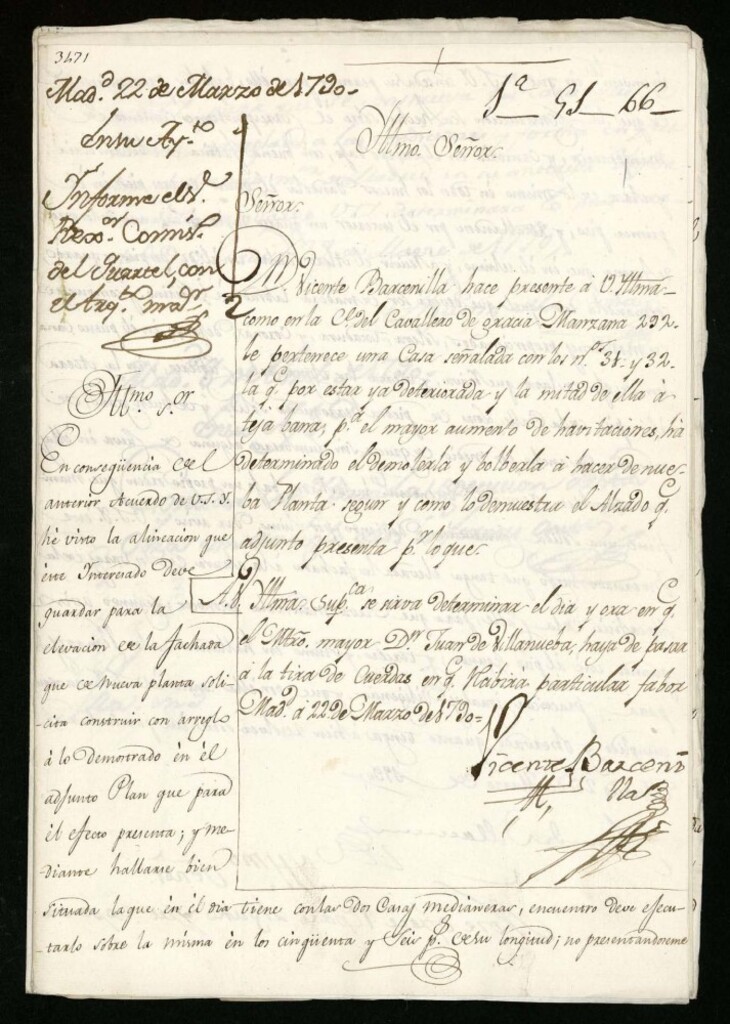 3471
Mad.d 22 de Marzo de 1790-
1a 51 66
En su Ay.to
Informe el S.r
Rex.or Comis.o
del Quartel, con
el Arq.to ma.r
Yltmo. Señor.
Señor.
Vicente Barcenilla hace presente à V. Yltma.
como en la C.e del Cavallero de gracia Manzana 292-
le pertenece una Casa señalada con los n.os 31- y 32-
la q.e por estar ya deteriorada y la mitad de ella à
teja bana, p.a el mayor aumento de havitaciones, ha
determinado el demolerla y bolberla à hacer de nue-
ba Planta segun y como lo demuestra el Alzado q.e
adjunto presenta p.r lo que.
A V. Yltma. sup.ca se sirva determinar el dia y ora en q.e
el Mtro. mayor D.n Juan de Villanueba, haya de pasar
à la tira de Cuerdas en q.e Rabirá particular fabor
Mad.d à 22 de Marzo de 1790-
Vicente Barceni
lla
Yltmo. S.or
En conseqüencia de el
anterior Acuerdo de V.S.Y.
hè visto la alineacion que
este Interesado deve
guardar para la
elevacion de la fachada
que de nueva planta soli-
-cita construir con arreglo
à lo demostrado èn èl
adjunto Plan que para
èl efecto presenta; y me-
diante hallarse bien
situada la que èn èl dia tiene con las dos Casas medianeras, encuentro deve efecu-
tarlo sobre la misma èn los cinqüenta y Seis p.s de su longitud; no presentandoseme